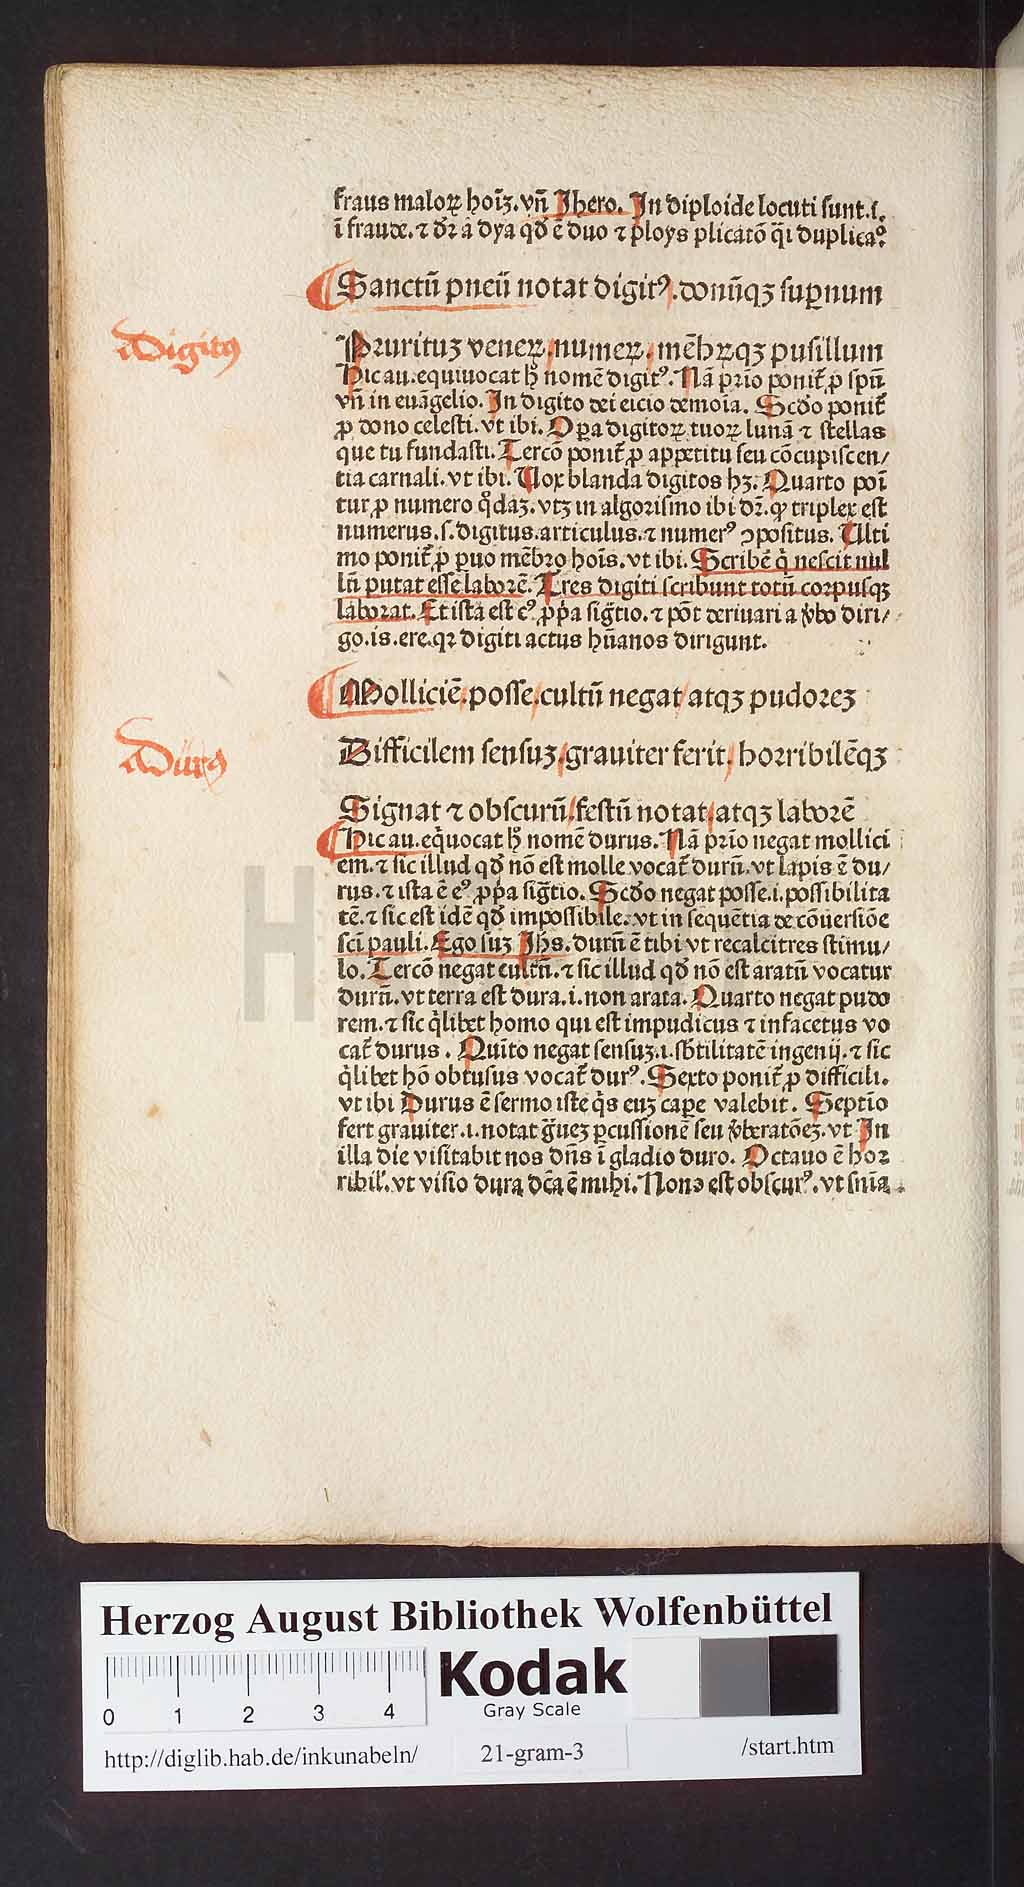 fraus maloꝝ hoīꝫ. vn̄ Jhero. In diploide locuti sunt. i.
ī fraude. ⁊ dr̄ a dya qd̓ ē duo ⁊ ploys plicatō q̄i duplicaꝰ
Sanctū pneū notat digitꝰ. donūqꝫ suꝑnum
Digitus
Prurituꝫ veneꝝ/ numeꝝ/ mēbꝝqꝫ pusillum
Hic au. equiuocat h̓ nomē digitꝰ. Nā prīo ponit̄ ꝓ spū
vn̄ in euāgelio. In digito dei eicio demoīa. Scd̓o ponit̄
ꝓ dono celesti. vt ibi. Oꝑa digitoꝝ tuoꝝ lunā ⁊ stellas
que tu fundasti. Tercō ponit̄ ꝓ appetitu seu cōcupiscen/
tia carnali. vt ibi. Uox blanda digitos hꝫ. Quarto poī
tur ꝓ numero q̊daꝫ. vtꝫ in algorismo ibi dr̄. ꝙ triplex est
numerus. s. digitus. articulus. ⁊ numerꝰ ↄpositus. Ulti
mo ponit̄ ꝓ puo mēbro hoīs. vt ibi. Scribē q̇ nescit nul
lū putat esse laborē. Tres digiti scribunt totū corpusqꝫ
laborat. Et ista est eꝰ ꝓp̄a sig̅tio. ⁊ pōt deriuari a v̓bo diri/
go. is. ere. qꝛ digiti actus hūanos dirigunt.
Molliciē. posse. cultū negat/ atqꝫ pudoreꝫ
Durꝰ
Difficilem sensuꝫ/ grauiter ferit/ horribilēqꝫ
Signat ⁊ obscurū/ festū notat/ atqꝫ laborē
Hic au. eq̇uocat h̓ nomē durus. Nā prīo negat mollici
em. ⁊ sic illud qd̓ nō est molle vocat̄ durū. vt lapis ē du/
rus. ⁊ ista ē eꝰ ꝓp̄a sig̅tio. Scd̓o negat posse. i. possibilita
tē. ⁊ sic est idē qd̓ impossibile. vt in sequētia de cōuersiōe
sci̅ pauli. Ego suꝫ Jhs̄. durū ē tibi vt recalcitres stimu/
lo. Tercō negat cultū. ⁊ sic illud qd̓ nō est aratū vocatur
durū. vt terra est dura. i. non arata. Quarto negat pudo
rem. ⁊ sic q̇libet homo qui est impudicus ⁊ infacetus vo
cat̄ durus. Quīto negat sensuꝫ. i. sb̓tilitatē ingenij. ⁊ sic
q̇libet hō obtusus vocat̄ durꝰ. Sexto ponit̄ ꝓ difficili.
vt ibi Durus ē sermo iste q̇s euꝫ caꝑe valebit. Septīo
fert grauiter. i. notat g̅ueꝫ ꝑcussionē seu v̓beratōeꝫ. vt In
illa die visitabit nos dn̄s ī gladio duro. Octauo ē hor
ribil̓. vt visio dura dc̄a ē mihi. Nono est obscurꝰ. vt sniā
Herzog August Bibliothek Wolfenbüttel
Kodak
Gray Scale
0 1 2 3 4
http://diglib.hab.de/inkunabeln/ 21-gram-3 /start.htm